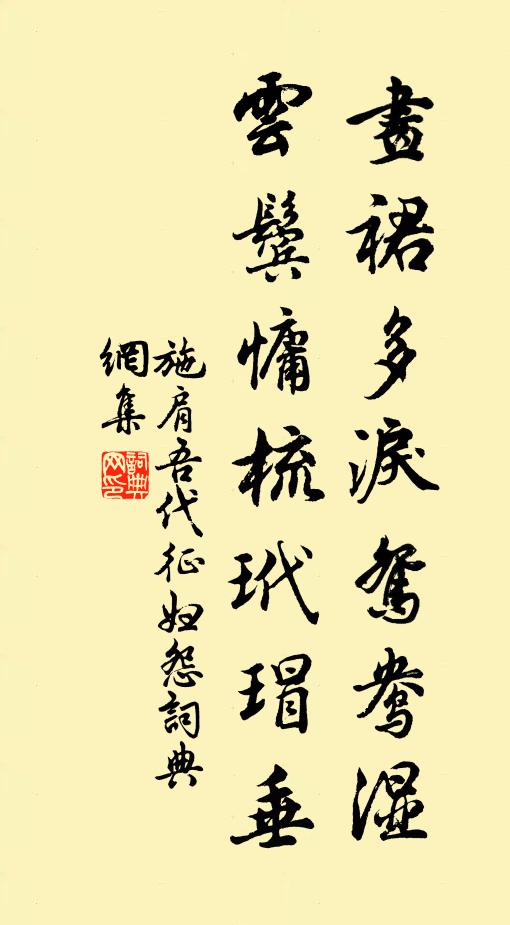 畫裙多淚鴛鴦濕
雲鬢慵梳玳瑁垂
施肩吾代征婦怨詞典
網集
詞典網印